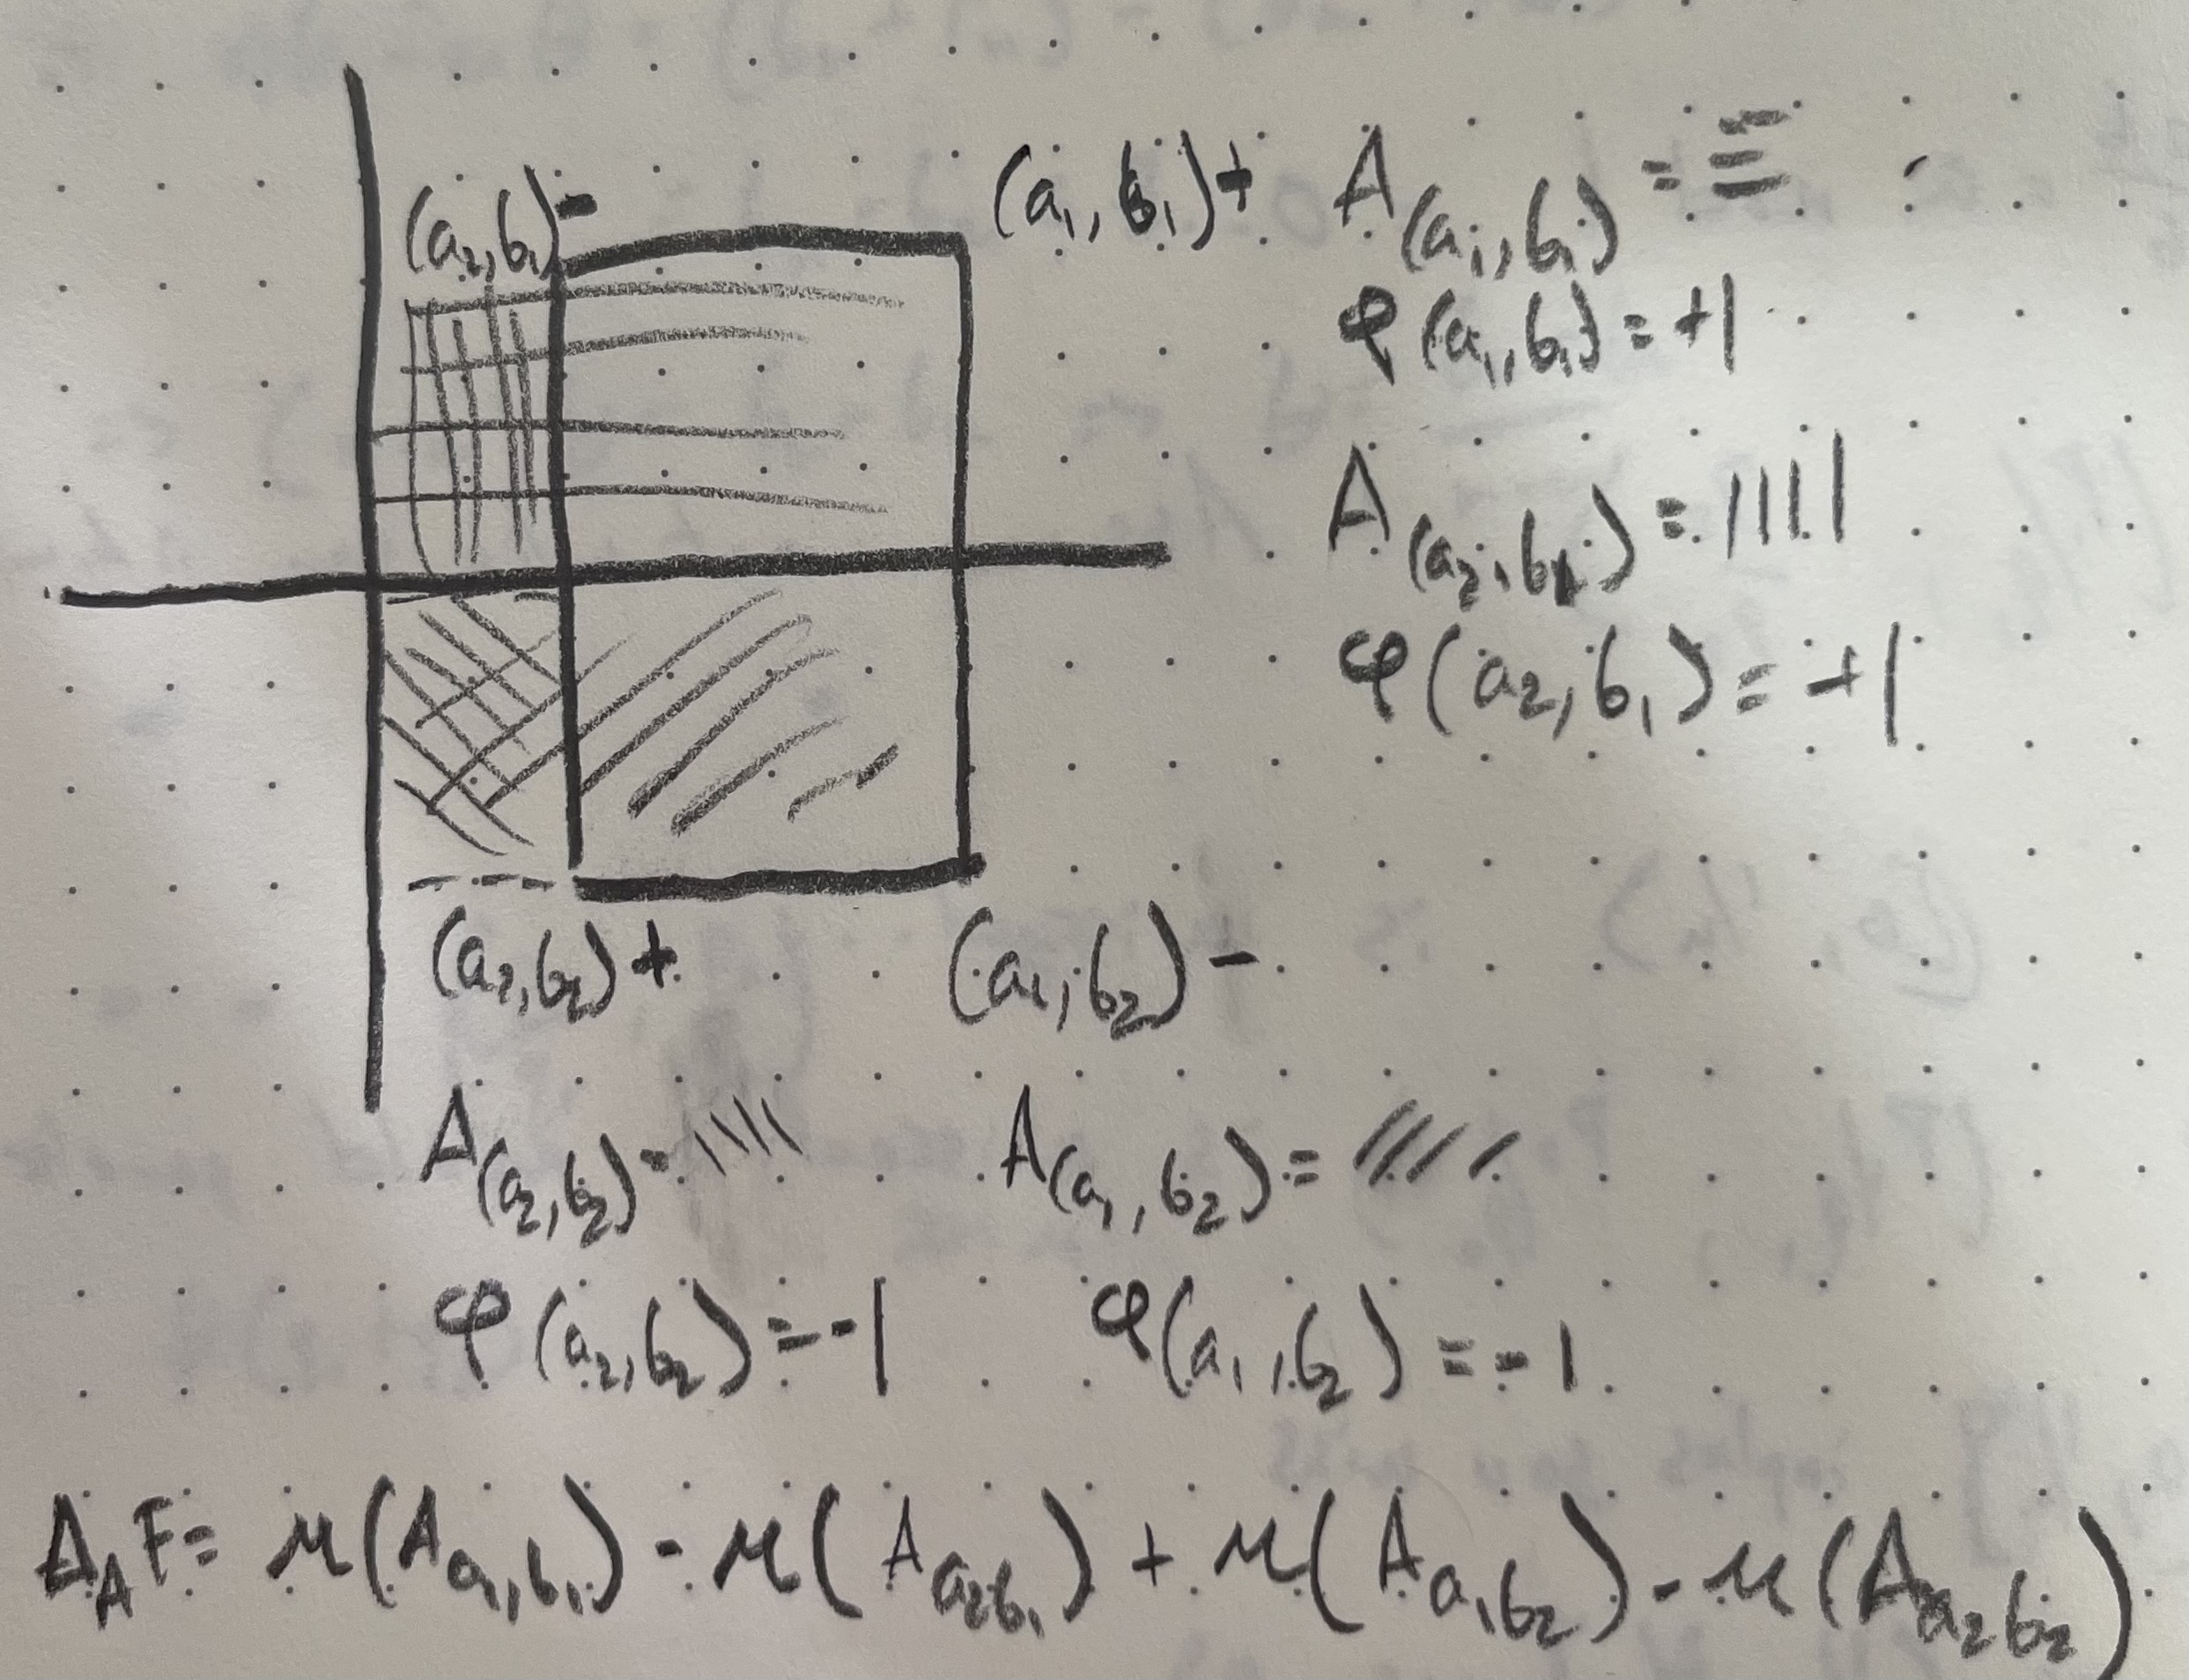 (a₂,b₁)- (a₁,b₁)+ A(a₁,b₁) = ≡
φ(a₁,b₁)=+1
A(a₂,b₁)= ||||
φ(a₂,b₁)=+1
(a₂,b₂)+ (a₁,b₂)-
A(a₂,b₂)= \\\\ A(a₁,b₂)= ////
φ(a₂,b₂)=-1 φ(a₁,b₂)=-1
Δ_A F= μ(A_{a₁,b₁}) - μ(A_{a₂b₁}) + μ(A_{a₁b₂}) - μ(A_{a₂b₂})